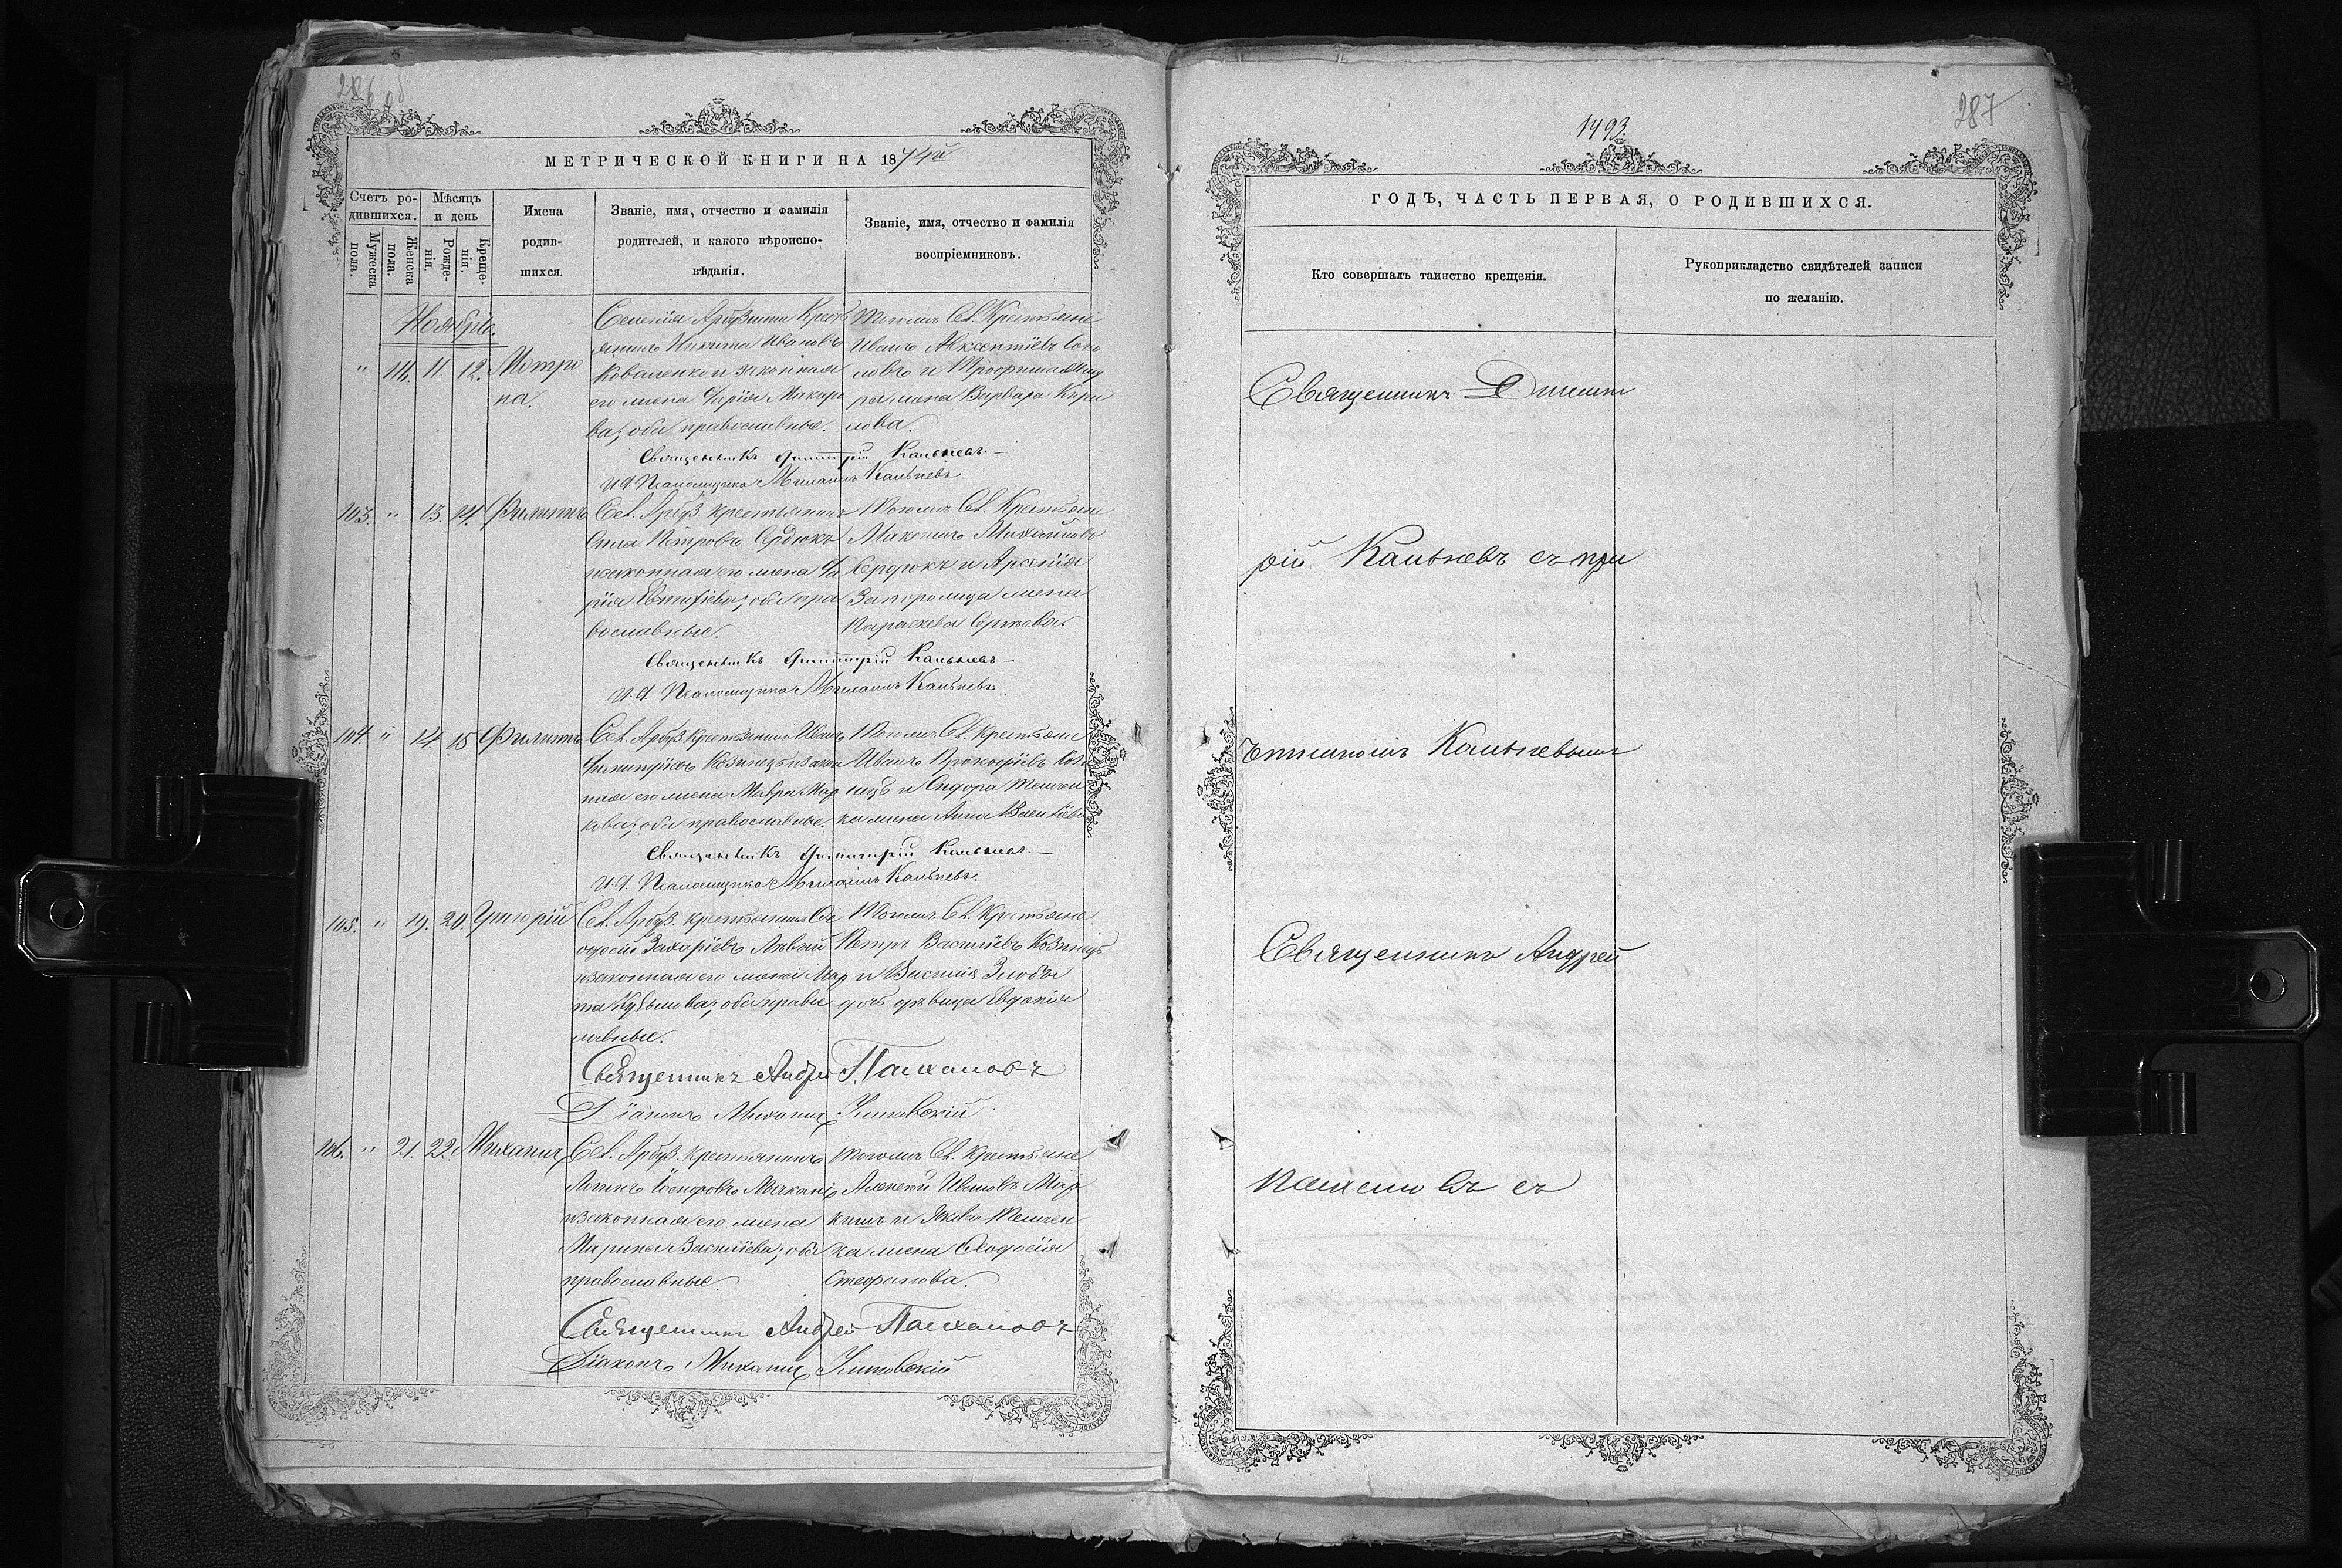 286 об
МЕТРИЧЕСКОЙ КНИГИ НА 1874й
Счетъ ро-
дившихся.
Мужеска пола.
Женска пола.
Мѣсяцъ
и день
Рожде-
нія.
Креще-
нія.
Имена
родив-
шихся.
Званіе, имя, отчество и фамилія
родителей, и какого вѣроиспо-
вѣданія.
Званіе, имя, отчество и фамилія
воспріемниковъ.
Ноября.
" 11. 12. Матро
на.
Селенія Арбузинки Крест
янинъ Никита Ивановъ
Коваленко и законная
его жена Дарія Макаро
ва, оба православные.
Тогожъ Сел. Крестьяне
Иванъ Авксентіевъ
ловъ и Трофима
ра жена Варвара Кири
лова.
Священникъ Димитрій Кальневъ.
И. д. Псаломщика Михаилъ Кальневъ
103. " 13. 14. Филиппъ
Сел. Арбуз. крестьянинъ
Петровъ Сердюкъ
и законная его жена Да
рія Евтихіева, оба пра
вославные.
Тогожъ Сел. Крестьяне
Максимъ Михайловъ
Сердюкъ и Арсенія
Запорожца жена
Параскева Сергіева.
Священникъ Димитрій Кальневъ
И. д. Псаломщика Михаилъ Кальневъ.
104. " 14 15 Филиппъ
Сел. Арбуз. Крестьянинъ Иванъ
Димитріевъ и закон
ная его жена Мавра Мар
кова, оба православные.
Тогожъ Сел. крестьяне
Иванъ Прокофіевъ
и Сидора
ка жена Анна
Священникъ Димитрій Кальневъ.
И. д. Псаломщика Михаилъ Кальневъ.
105. " 19. 20. Григорій
Сел. Арбуз. крестьянинъ Ѳе
одосій Захаріевъ
и законная его жена Мар
та Кузьмова, оба правос
лавные.
Тогожъ Сел. Крестьяне
Петръ Василіевъ
и Василія
дочь дѣвица Евдокія
Священникъ Андрей Пасхаловъ
Діаконъ Михаилъ
106. " 21. 22. Михаилъ
Сел. Арбуз. крестьянинъ
Іосифовъ
и законная его жена
Марина Василіева, оба
православные.
Тогожъ Сел. Крестьяне
Алексѣй Ивановъ Мар
и Якова
ка жена Ѳеодосія
Стефанова.
Священникъ Андрей Пасхаловъ
Діаконъ Михаилъ
1493.
287
ГОДЪ, ЧАСТЬ ПЕРВАЯ, О РОДИВШИХСЯ.
Кто совершалъ таинство крещенія.
Рукоприкладство свидѣтелей записи
по желанію.
Священникъ Димит
рій Кальневъ съ при
четникомъ Кальневымъ
Священникъ Андрей
Пасхаловъ съ